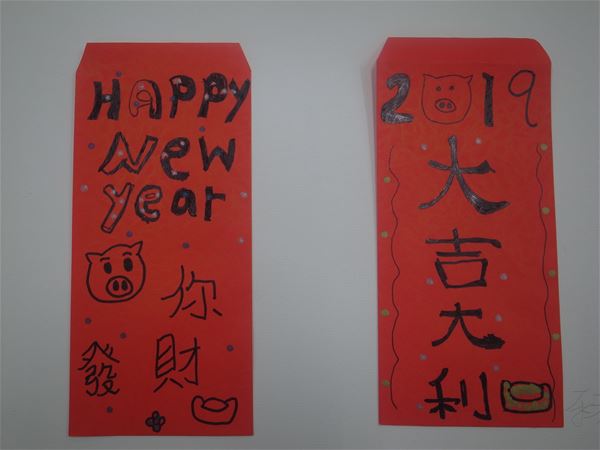 HAppy
New
year
你
發財
2019
大吉大利